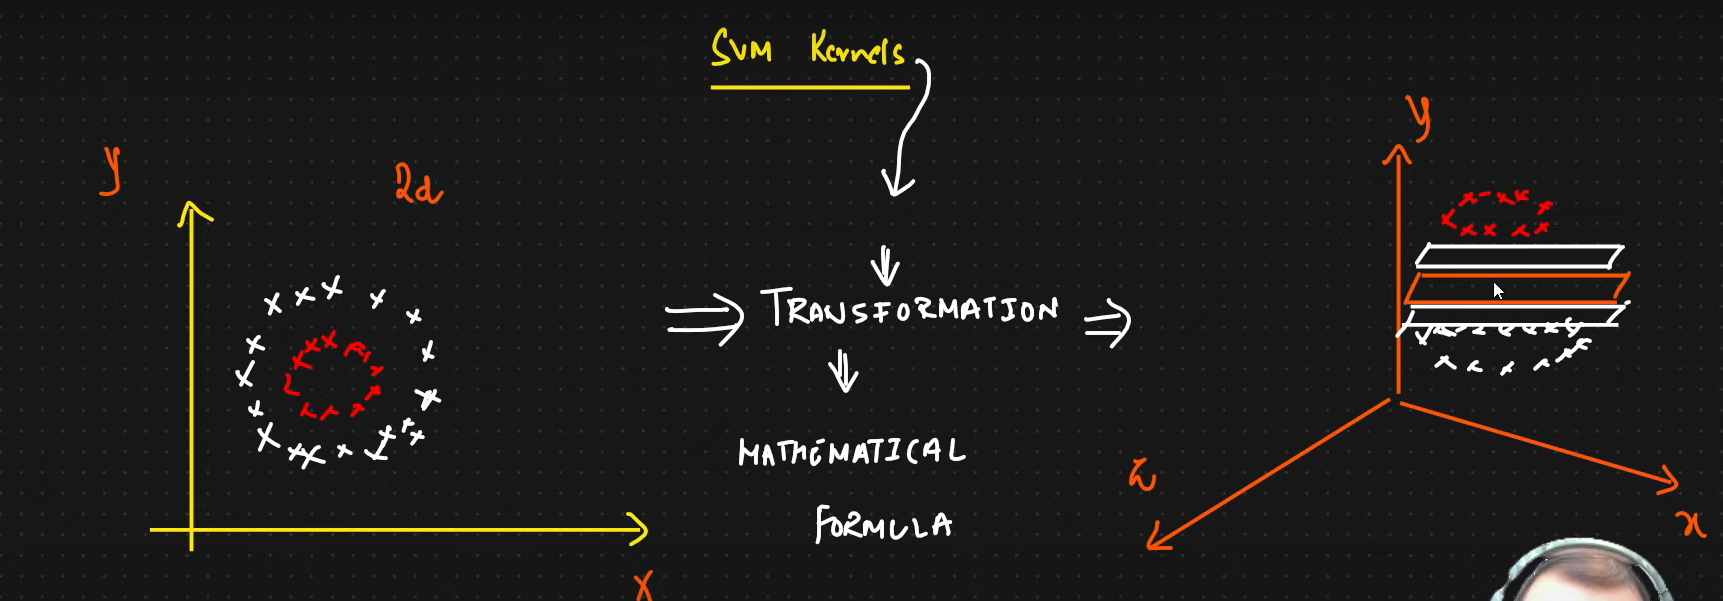 SVM Kernels
y
2d
y
TRANSFORMATION
MATHEMATICAL
FORMULA
z
x
x